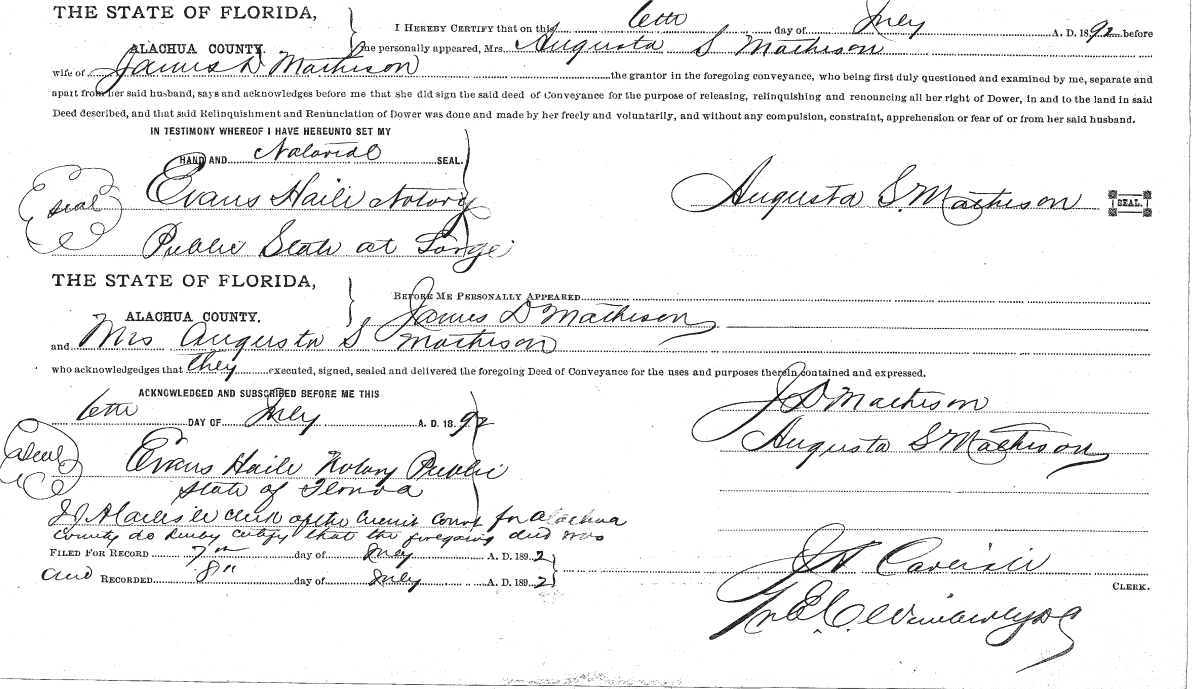 THE STATE OF FLORIDA,
I HEREBY CERTIFY that on this 6th day of July A. D. 1892 before
ALACHUA COUNTY. me personally appeared, Mrs. Augusta S Matheson
wife of James D Matheson the grantor in the foregoing conveyance, who being first duly questioned and examined by me, separate and
apart from her said husband, says and acknowledges before me that she did sign the said deed of Conveyance for the purpose of releasing, relinquishing and renouncing all her right of Dower, in and to the land in said
Deed described, and that said Relinquishment and Renunciation of Dower was done and made by her freely and voluntarily, and without any compulsion, constraint, apprehension or fear of or from her said husband.
IN TESTIMONY WHEREOF I HAVE HEREUNTO SET MY
HAND AND Notarial SEAL.
Seal Evans Haile Notary
Augusta S. Matheson SEAL.
Public State at Large
THE STATE OF FLORIDA,
BEFORE ME PERSONALLY APPEARED
ALACHUA COUNTY. James D Matheson
and Mrs Augusta S Matheson
who acknowledges that they executed, signed, sealed and delivered the foregoing Deed of Conveyance for the uses and purposes therein contained and expressed.
ACKNOWLEDGED AND SUBSCRIBED BEFORE ME THIS
6th DAY OF July A. D. 1892
J D Matheson
Augusta S Matheson
Seal Evans Haile Notary Public
State of Florida
Clerk of the Circuit Court for Alachua
County do hereby certify that the foregoing deed was
FILED FOR RECORD 7th day of July A. D. 1892
and RECORDED 8th day of July A. D. 1892
CLERK.